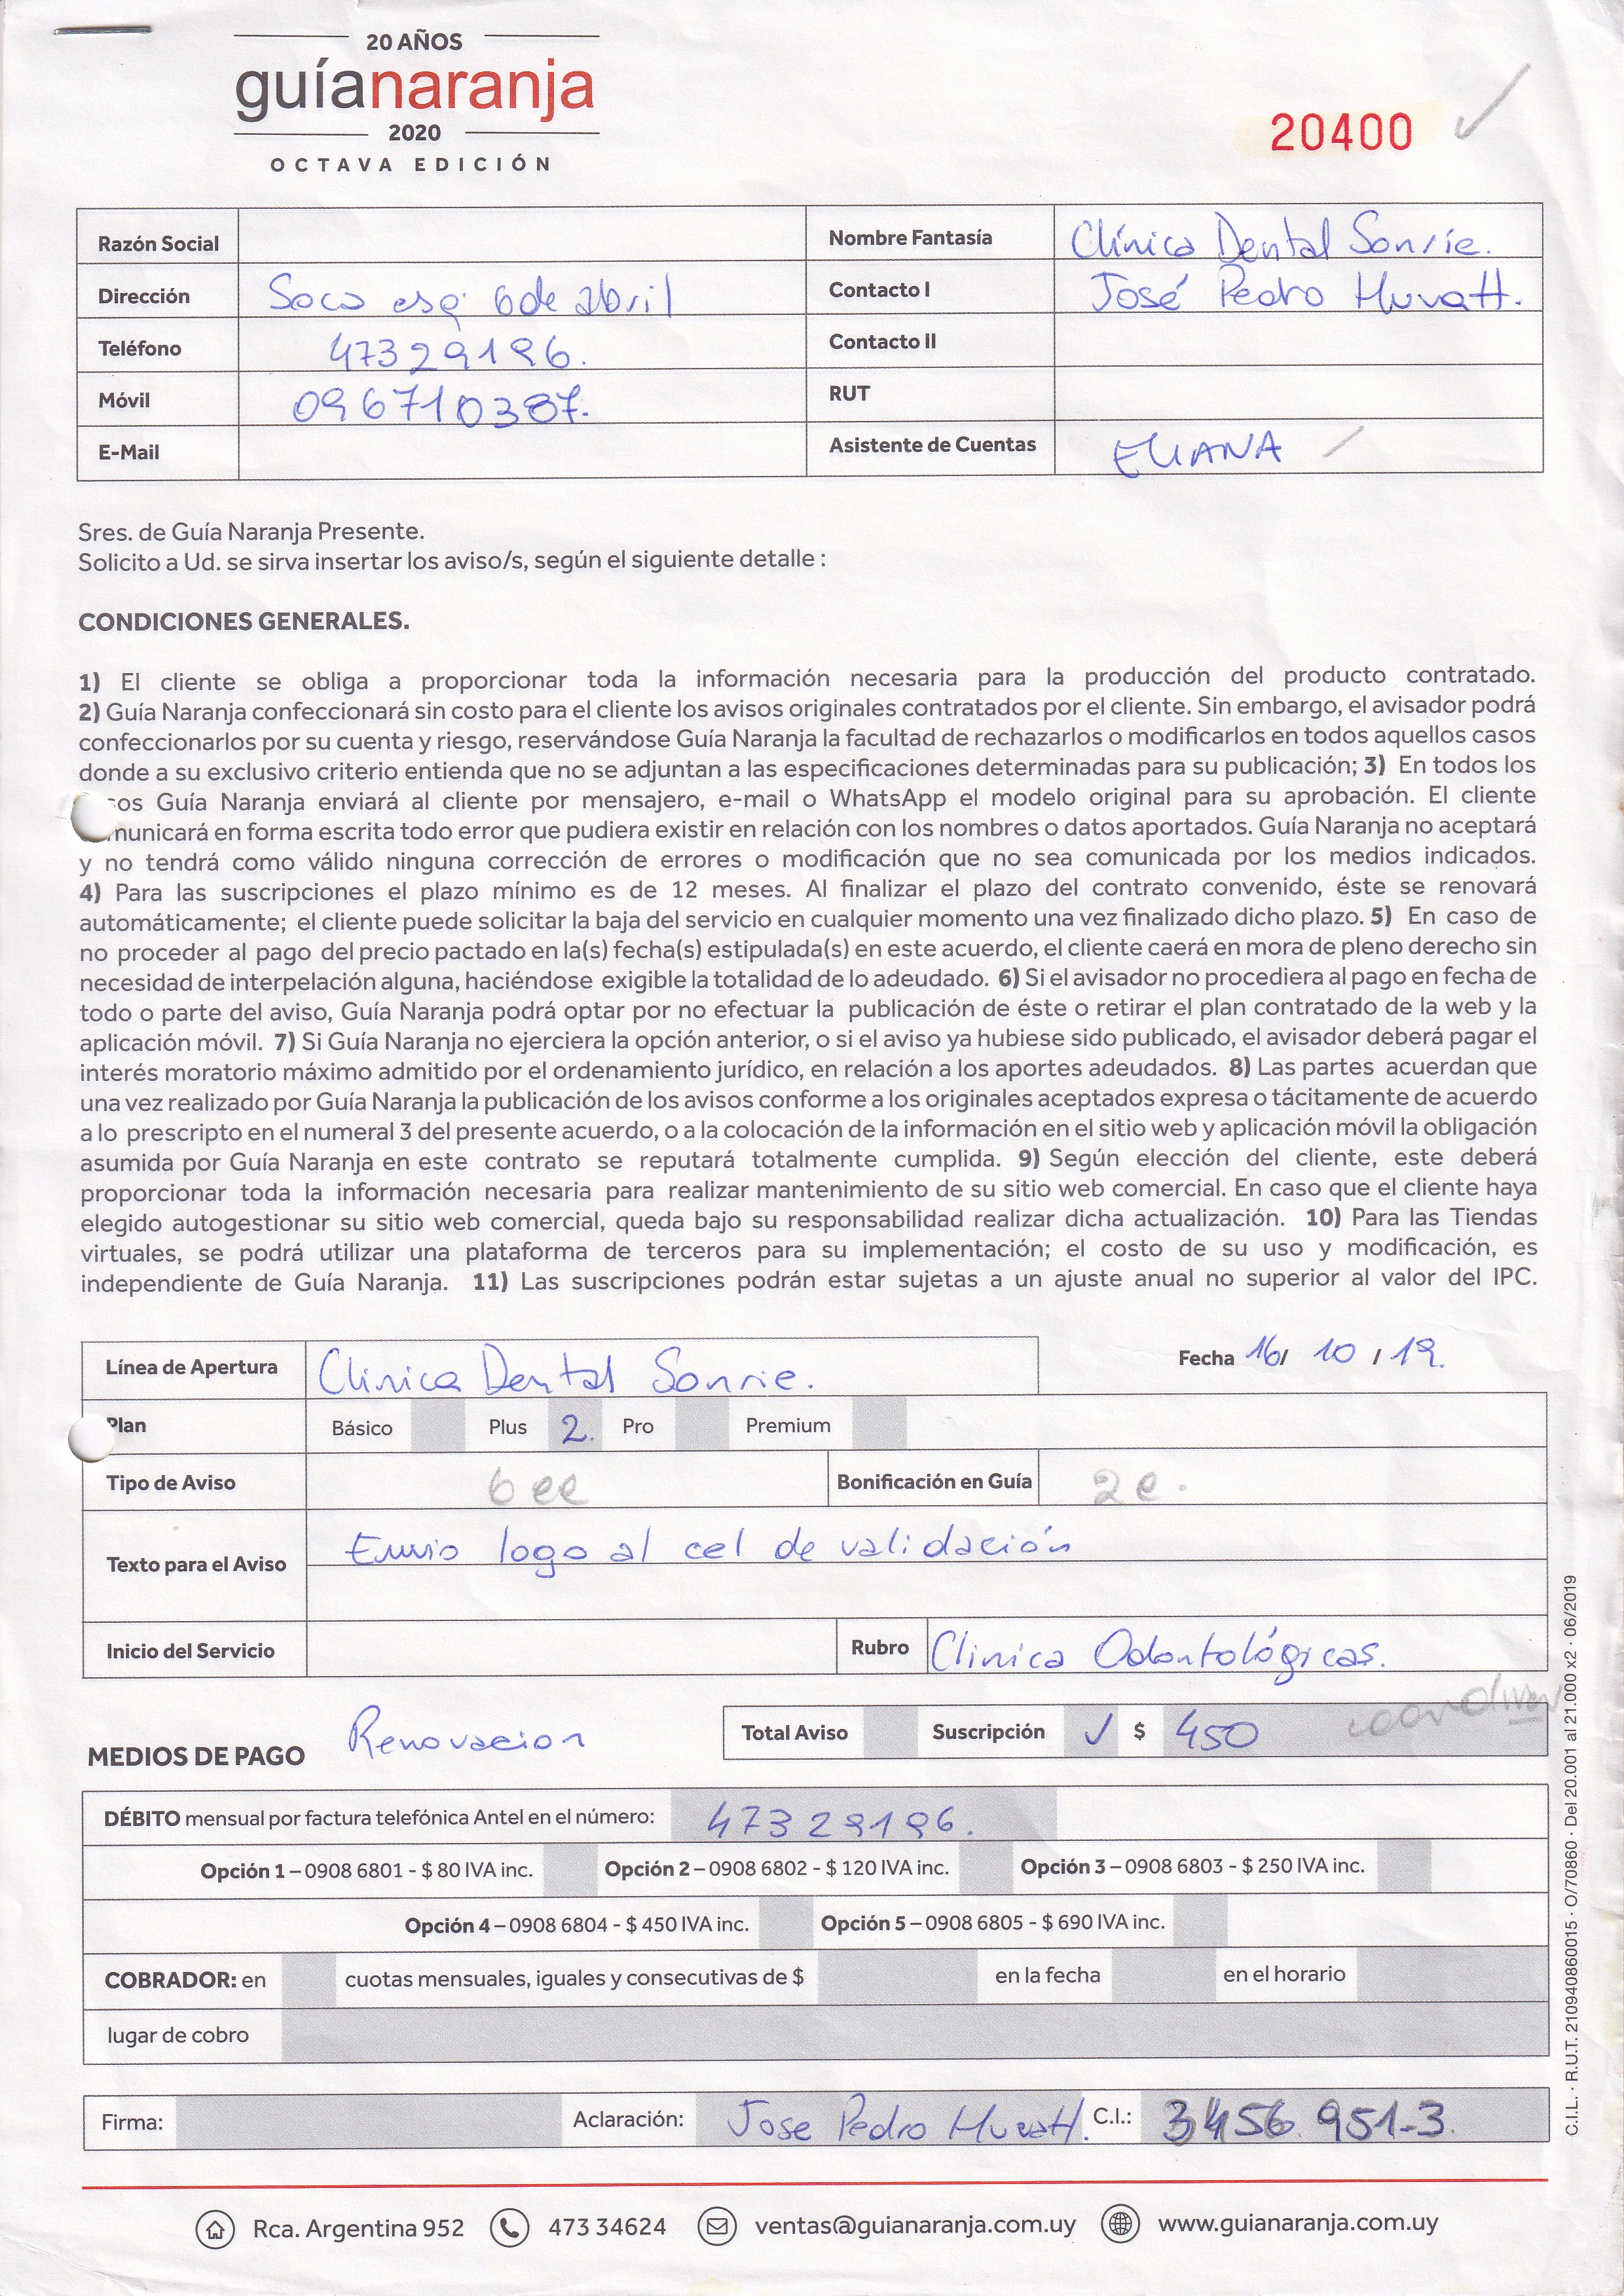 20 AÑOS
guíanaranja
2020
OCTAVA EDICIÓN
20400
Razón Social
Nombre Fantasía Clínica Dental Sonríe.
Dirección Soca esq. 6 de abril
Contacto I José Pedro
Teléfono 47329196.
Contacto II
Móvil 096710387.
RUT
E-Mail
Asistente de Cuentas ELIANA
Sres. de Guía Naranja Presente.
Solicito a Ud. se sirva insertar los aviso/s, según el siguiente detalle :
CONDICIONES GENERALES.
1) El cliente se obliga a proporcionar toda la información necesaria para la producción del producto contratado.
2) Guía Naranja confeccionará sin costo para el cliente los avisos originales contratados por el cliente. Sin embargo, el avisador podrá
confeccionarlos por su cuenta y riesgo, reservándose Guía Naranja la facultad de rechazarlos o modificarlos en todos aquellos casos
donde a su exclusivo criterio entienda que no se adjuntan a las especificaciones determinadas para su publicación; 3) En todos los
sos Guía Naranja enviará al cliente por mensajero, e-mail o WhatsApp el modelo original para su aprobación. El cliente
municará en forma escrita todo error que pudiera existir en relación con los nombres o datos aportados. Guía Naranja no aceptará
y no tendrá como válido ninguna corrección de errores o modificación que no sea comunicada por los medios indicados.
4) Para las suscripciones el plazo mínimo es de 12 meses. Al finalizar el plazo del contrato convenido, éste se renovará
automáticamente; el cliente puede solicitar la baja del servicio en cualquier momento una vez finalizado dicho plazo. 5) En caso de
no proceder al pago del precio pactado en la(s) fecha(s) estipulada(s) en este acuerdo, el cliente caerá en mora de pleno derecho sin
necesidad de interpelación alguna, haciéndose exigible la totalidad de lo adeudado. 6) Si el avisador no procediera al pago en fecha de
todo o parte del aviso, Guía Naranja podrá optar por no efectuar la publicación de éste o retirar el plan contratado de la web y la
aplicación móvil. 7) Si Guía Naranja no ejerciera la opción anterior, o si el aviso ya hubiese sido publicado, el avisador deberá pagar el
interés moratorio máximo admitido por el ordenamiento jurídico, en relación a los aportes adeudados. 8) Las partes acuerdan que
una vez realizado por Guía Naranja la publicación de los avisos conforme a los originales aceptados expresa o tácitamente de acuerdo
a lo prescripto en el numeral 3 del presente acuerdo, o a la colocación de la información en el sitio web y aplicación móvil la obligación
asumida por Guía Naranja en este contrato se reputará totalmente cumplida. 9) Según elección del cliente, este deberá
proporcionar toda la información necesaria para realizar mantenimiento de su sitio web comercial. En caso que el cliente haya
elegido autogestionar su sitio web comercial, queda bajo su responsabilidad realizar dicha actualización. 10) Para las Tiendas
virtuales, se podrá utilizar una plataforma de terceros para su implementación; el costo de su uso y modificación, es
independiente de Guía Naranja. 11) Las suscripciones podrán estar sujetas a un ajuste anual no superior al valor del IPC.
Línea de Apertura Clinica Dental Sonrie.
Fecha 16/ 10 / 19.
Plan Básico Plus 2. Pro Premium
Tipo de Aviso 6 ee Bonificación en Guía 2e.
Texto para el Aviso Envio logo al cel de validación
Inicio del Servicio Rubro Clinica Odontológicas.
Renovacion
Total Aviso Suscripción ✓ $ 450
MEDIOS DE PAGO
DÉBITO mensual por factura telefónica Antel en el número: 47329196.
Opción 1 – 0908 6801 - $ 80 IVA inc. Opción 2 – 0908 6802 - $ 120 IVA inc. Opción 3 – 0908 6803 - $ 250 IVA inc.
Opción 4 – 0908 6804 - $ 450 IVA inc. Opción 5 – 0908 6805 - $ 690 IVA inc.
COBRADOR: en cuotas mensuales, iguales y consecutivas de $ en la fecha en el horario
lugar de cobro
Firma: Aclaración: Jose Pedro C.I.: 3456 951-3
Rca. Argentina 952 473 34624 ventas@guianaranja.com.uy www.guianaranja.com.uy
C.I.L. · R.U.T. 210940860015 · O/70860 · Del 20.001 al 21.000 x2 · 06/2019